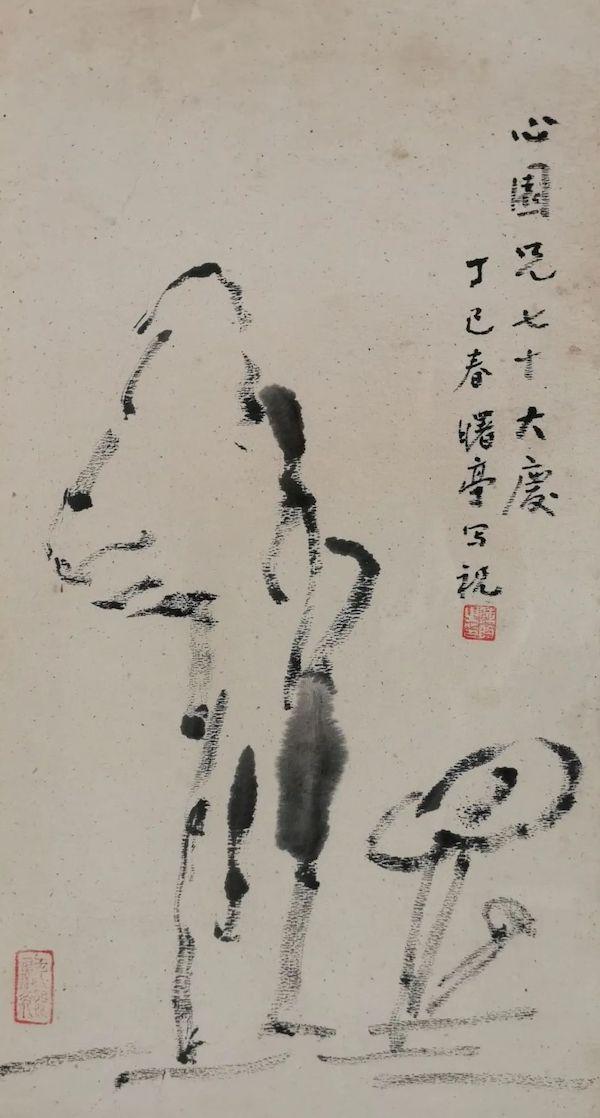 心園兄七十大慶
丁巳春曙亭写祝